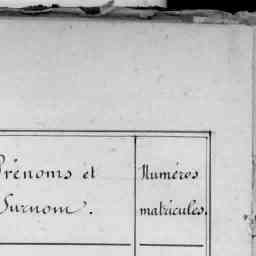 Prénoms et
Surnom.
Numéros
matricules.